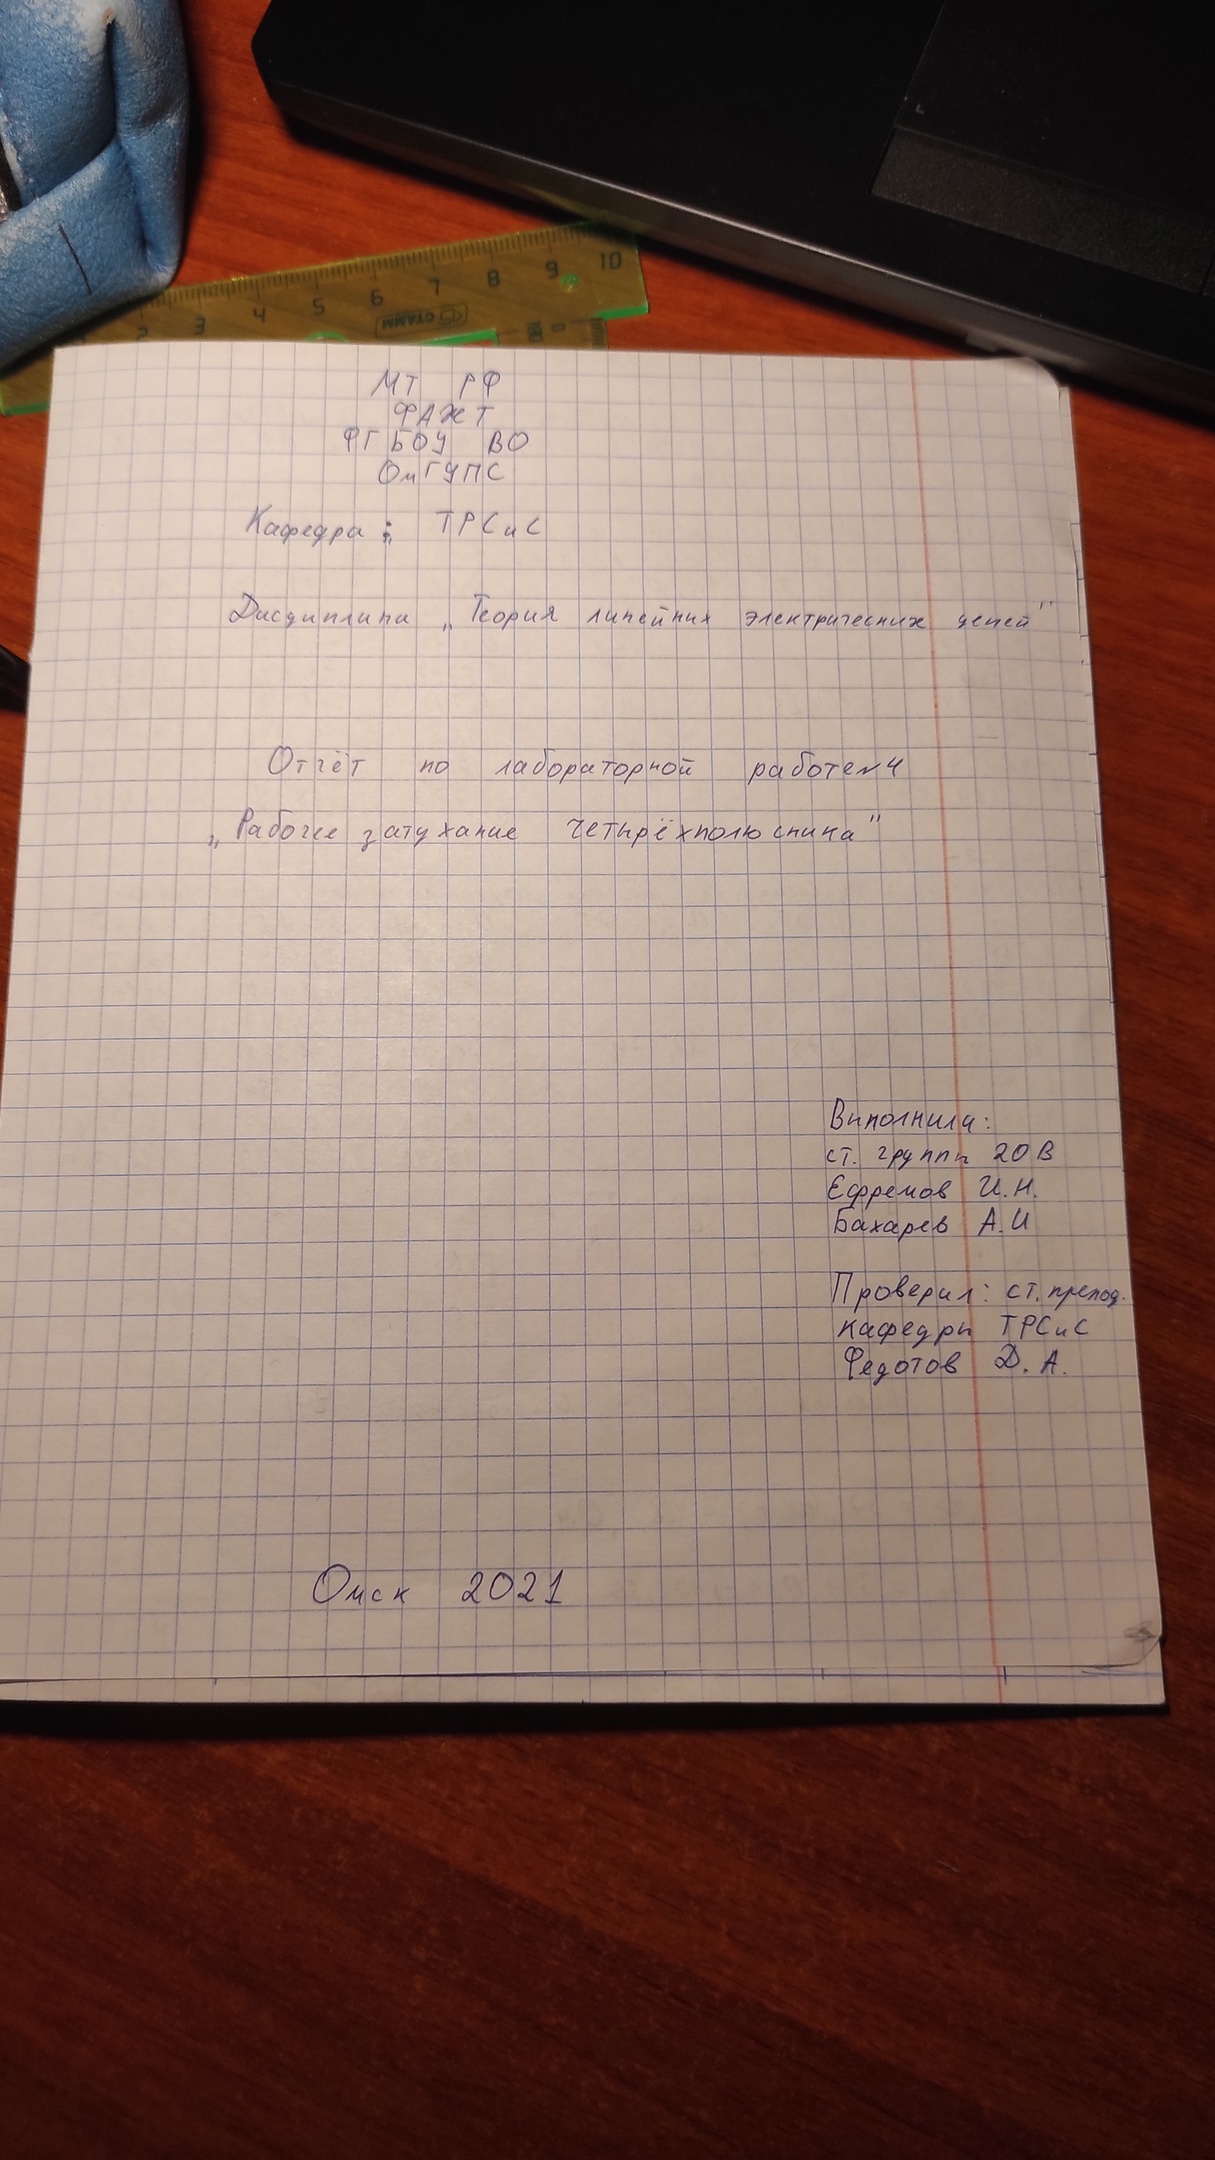 2 3 4 5 6 7 8 9 10
СТАММ
МТ РФ
ФАЖТ
ФГБОУ ВО
ОмГУПС
Кафедра: ТРСиС
Дисциплина „Теория линейных электрических цепей"
Отчёт по лабораторной работе №4
„Рабочее затухание четырёхполюсника"
Выполнили:
ст. группы 20В
Ефремов И.Н.
Бахарев А.И
Проверил: ст. препод.
кафедры ТРСиС
Федотов Д.А.
Омск 2021